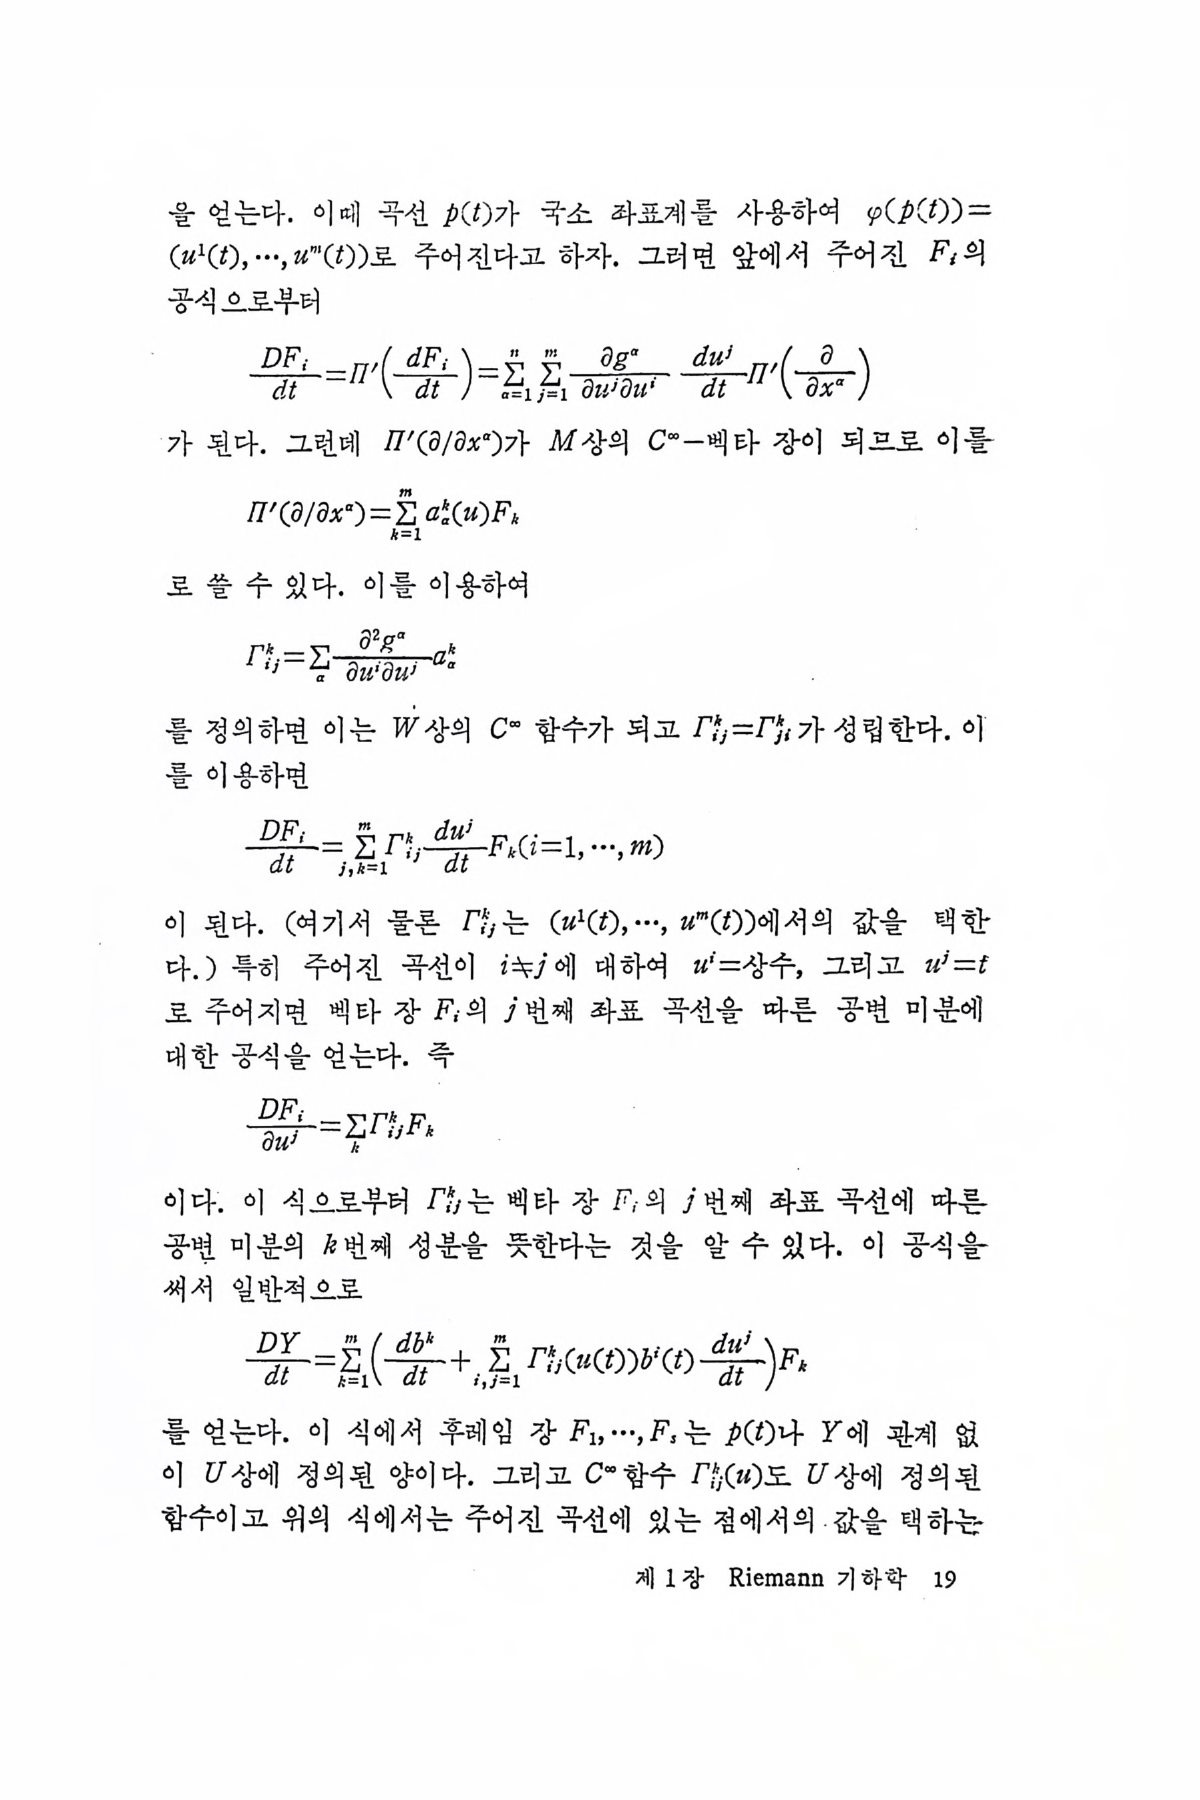 을 얻는다. 이때 곡선 p(t)가 국소 좌표계를 사용하여 φ(p(t))=
(u¹(t),…,uᵐ(t))로 주어진다고 하자. 그러면 앞에서 주어진 Fᵢ의
공식으로부터
\frac{DF_i}{dt}=Π'(\frac{dF_i}{dt})=\sum_{α=1}^{n}\sum_{j=1}^{m}\frac{∂g^α}{∂u^j∂u^i}\frac{du^j}{dt}Π'(\frac{∂}{∂x^α})
가 된다. 그런데 Π'(∂/∂x^α)가 M상의 C^∞—벡타 장이 되므로 이를
Π'(∂/∂x^α)=\sum_{k=1}^{m}a_α^k(u)F_k
로 쓸 수 있다. 이를 이용하여
Γ_{ij}^k=\sum_α\frac{∂²g^α}{∂u^i∂u^j}a_α^k
를 정의하면 이는 W상의 C^∞ 함수가 되고 Γ_{ij}^k=Γ_{ji}^k가 성립한다. 이
를 이용하면
\frac{DF_i}{dt}=\sum_{j,k=1}^{m}Γ_{ij}^k\frac{du^j}{dt}F_k(i=1,…,m)
이 된다. (여기서 물론 Γ_{ij}^k는 (u¹(t),…, uᵐ(t))에서의 값을 택한
다.) 특히 주어진 곡선이 i≠j에 대하여 u^i=상수, 그리고 u^j=t
로 주어지면 벡타 장 F_i의 j번째 좌표 곡선을 따른 공변 미분에
대한 공식을 얻는다. 즉
\frac{DF_i}{∂u^j}=\sum_kΓ_{ij}^kF_k
이다. 이 식으로부터 Γ_{ij}^k는 벡타 장 F_i의 j번째 좌표 곡선에 따른
공변 미분의 k번째 성분을 뜻한다는 것을 알 수 있다. 이 공식을
써서 일반적으로
\frac{DY}{dt}=\sum_{k=1}^{m}(\frac{db^k}{dt}+\sum_{i,j=1}^{m}Γ_{ij}^k(u(t))b^i(t)\frac{du^j}{dt})F_k
를 얻는다. 이 식에서 후레임 장 F₁,…,F_s는 p(t)나 Y에 관계 없
이 U상에 정의된 양이다. 그리고 C^∞함수 Γ_{ij}^k(u)도 U상에 정의된
함수이고 위의 식에서는 주어진 곡선에 있는 점에서의 값을 택하는
제 1 장 Riemann 기하학 19